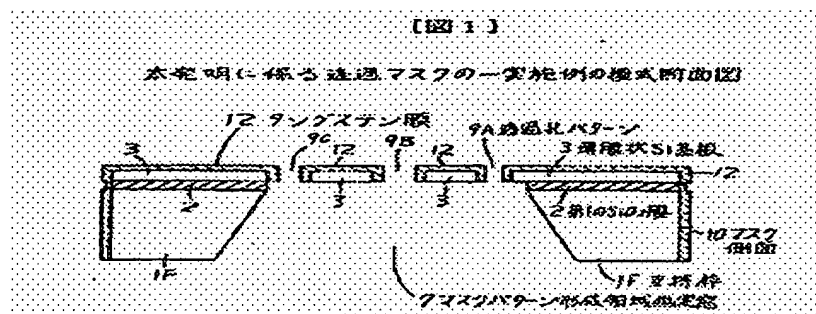 [図1]
本発明に係る透過マスクの一実施例の模式断面図
12 タングステン膜
9C
9B
9A 透過孔パターン
3
12
12
3 薄膜状Si基板
12
2
3
3
2 第1のSiO₂膜
10 マスク側面
1F
1F 支持枠
7 マスクパターン形成領域